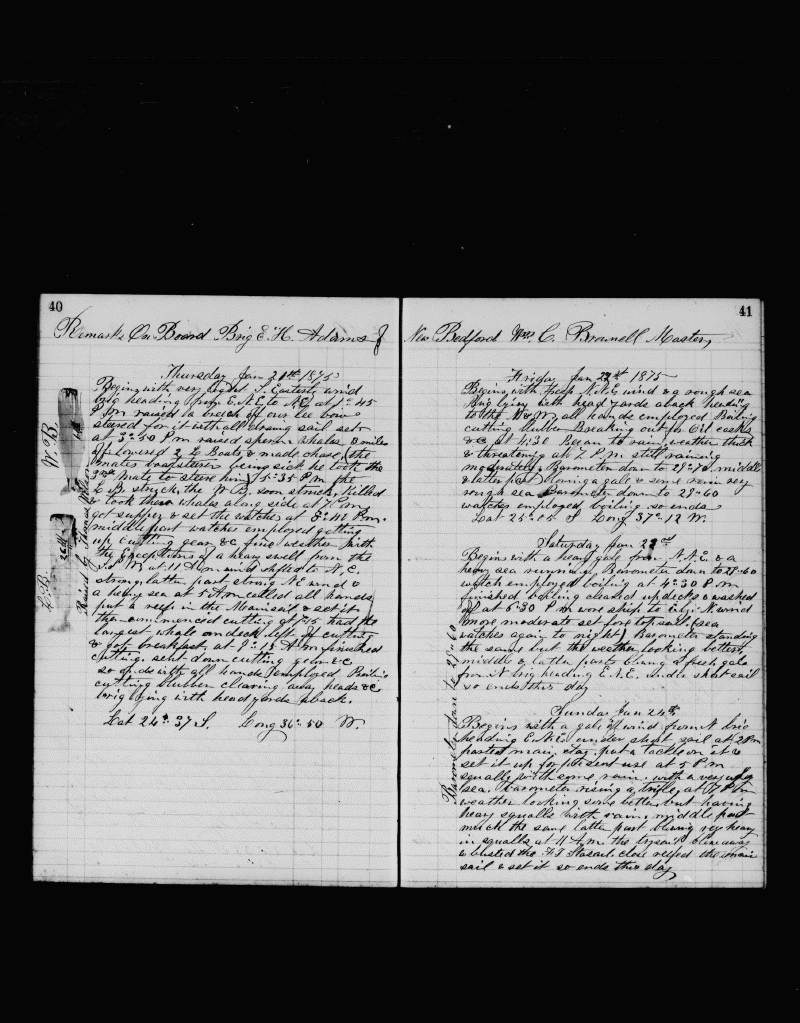 40
Remarks On Board Brig E. H. Adams of
Thursday Jan 21st 1875
Begins with very light S. Easterly wind
brig heading from E.N.E to N.E. at 1-45
P.m raised a breach off our lee bow
steered for it with all closing sail set
at 3-50 P m raised sperm whales 2 miles
off lowered 2 Boats & made chase (the
mates boatsteerer being sick he took the
3rd mate to steer him) 5-35 P.m the
L B. struck, the W B. soon struck, killed
& took them whales along side at 7 P.m
got supper & set the watches at 8-40 P.m.
middle part watches employed getting
up cutting gear &c fine weather with
the Exceptions of a heavy swell from the
at 11 A.m wind shifted to N.E.
strong latter part strong N E wind &
a heavy sea at 5 A.m called all hands
put a reef in the Mainsail & set it
then commenced cutting at 7-15 had the
largest whale on deck left off cutting
& got breakfast, at 9-15 A.m finished
cutting, sent down cutting gear &c
so ends with all hands employed Boiling
cutting blubber clearing away heads &c
brig lying with head yards aback.
Lat 24°-37 S. Long 36°-50 W.
W B
L. B.
Raised by
41
New Bedford Wm C. Brownell Master,
Friday Jan 22nd 1875
Begins with fresh N.N.E wind & a rough sea
Brig lying with head yards aback heading
to the all hands employed Boiling
cutting blubber Breaking out for Oil casks
&c at 4:30 Began to rain weather thick
& threatening at 7 P.m still raining
moderately, Barometer down to 29-70, middle
& latter part blowing a gale & some rain very
rough sea Barometer down to 29-60
watches employed boiling so ends
Lat 25°-05 S Long 37°-12 W.
Saturday Jan 23rd
Begins with a heavy gale from N.N.E. & a
heavy sea running, Barometer down to 29-60
watch employed boiling at 4-30 P.m
finished boiling cleared up decks & washed
off at 5-30 P m wore ship to wind
more moderate set fore top sail (sea
watches again to night) Barometer standing
the same but the weather looking better,
middle & latter parts blowing a fresh gale
from N brig heading E.N.E. under short sail
so ends this day
Sunday Jan 24th
Begins with a gale of wind from N brig
heading E.N.E. under short sail at 2 P m
parted main stay, put a tackle on it &
set it up for present use at 5 P m
squally with some rain, with a very ugly
sea. barometer rising a trifle, at 7 P m
weather looking some better but having
heavy squalls with rain, middle part
much the same latter part blowing very heavy
in squalls at 11 A.m the trysail blew away
& busted the F.T. Staysail close reefed the main
sail & set it so ends this day,
Barometer down to 29-60